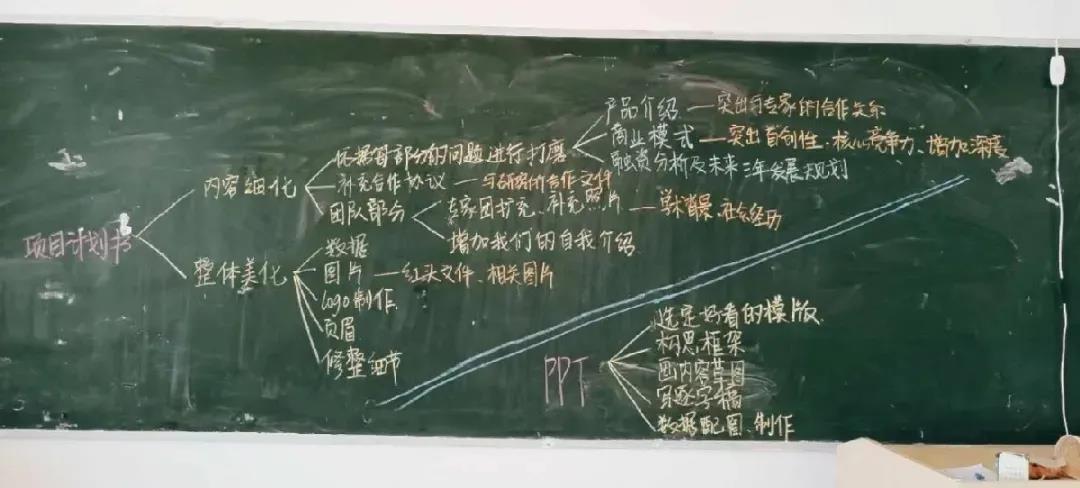 项目计划书
内容细化
依据每部分的问题进行打磨
产品介绍 — 突出与专家的合作关系
商业模式 — 突出首创性、核心竞争力、增加深度
融资分析及未来三年发展规划
补充合作协议 — 与研究所合作文件
团队部分
专家团扩充、补充照片 — 学术背景、社会经历
增加我们的自我介绍
整体美化
数据
图片 — 红头文件、相关图片
logo制作
页眉
修整细节
PPT
选定好看的模版
构思框架
画内容草图
写逐字稿
数据配图、制作